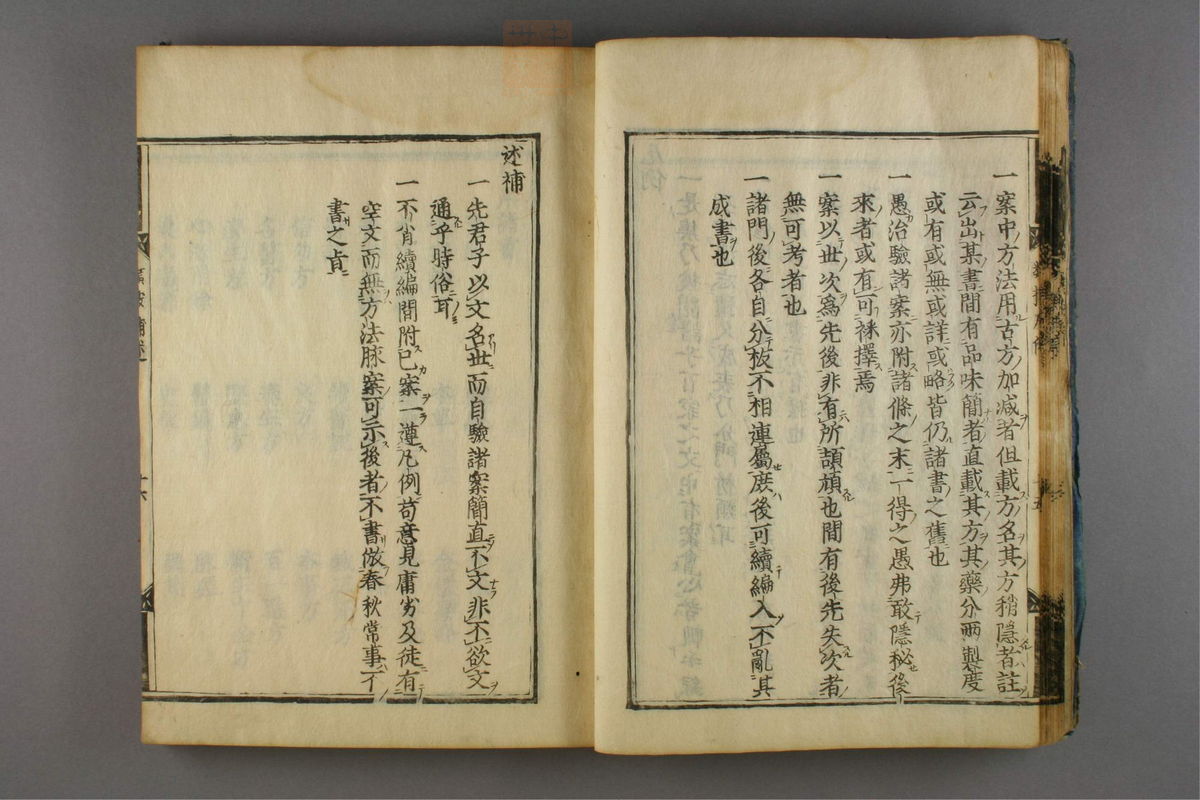 一案中方法用古方加减者但載方名其方稍隱者註
云出某書間有品味簡者直載其方其藥分兩製度
或有或無或詳或略皆仍諸書之舊也
一愚治驗諸案亦附諸條之末一得之愚弗敢隱秘後
來者或有可裸擇焉
一案以世次爲先後非有所頡頏也間有後先失次者
無可考者也
一諸門後各自分板不相連屬庻後可續編入不亂其
成書也
述補
一先君子以文名世而自驗諸案簡直不文非不欲文
通乎時俗耳
一不肖續編間附已案一遵凡例苟意見庸劣及徒有
空文而無方法脉案可示後者不書倣春秋常事不
書之㫖